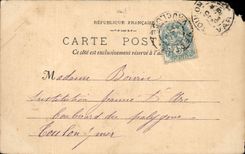 RÉPUBLIQUE FRANÇAISE
CARTE POST
Ce côté est exclusivement réservé à l'a
Madame Boivin
Institution Jeanne d'Arc
boulevard du polygone
Toulon s/mer